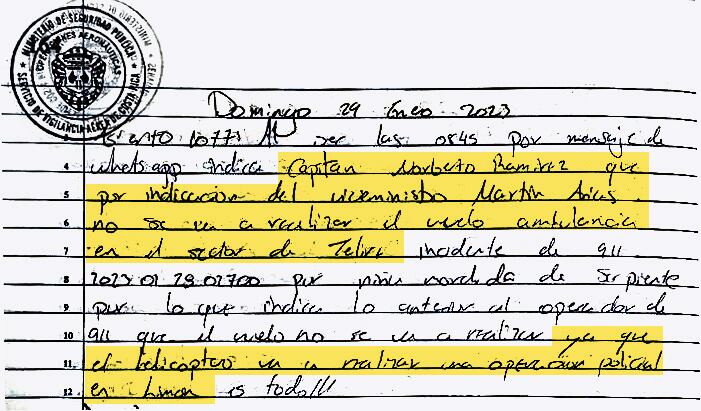 MINISTERIO DE SEGURIDAD PUBLICA
OPERACIONES AERONAUTICAS
SERVICIO DE VIGILANCIA AEREA DE COSTA RICA
Domingo 29 Enero 2023
Evento 10773 Al ser las 0845 por mensaje de
4 whatsapp indica Capitan Norberto Ramirez que
5 por indicacion del viceministro Martin Arias
6 no se va a realizar el vuelo ambulancia
7 en el sector de Telire incidente de 911
8 2023 01 29 02700 por niña mordida de serpiente
9 por lo que indica lo anterior al operador de
10 911 que el vuelo no se va a realizar ya que
11. el helicoptero va a realizar una operacion policial
12. en Limon es todo!!!